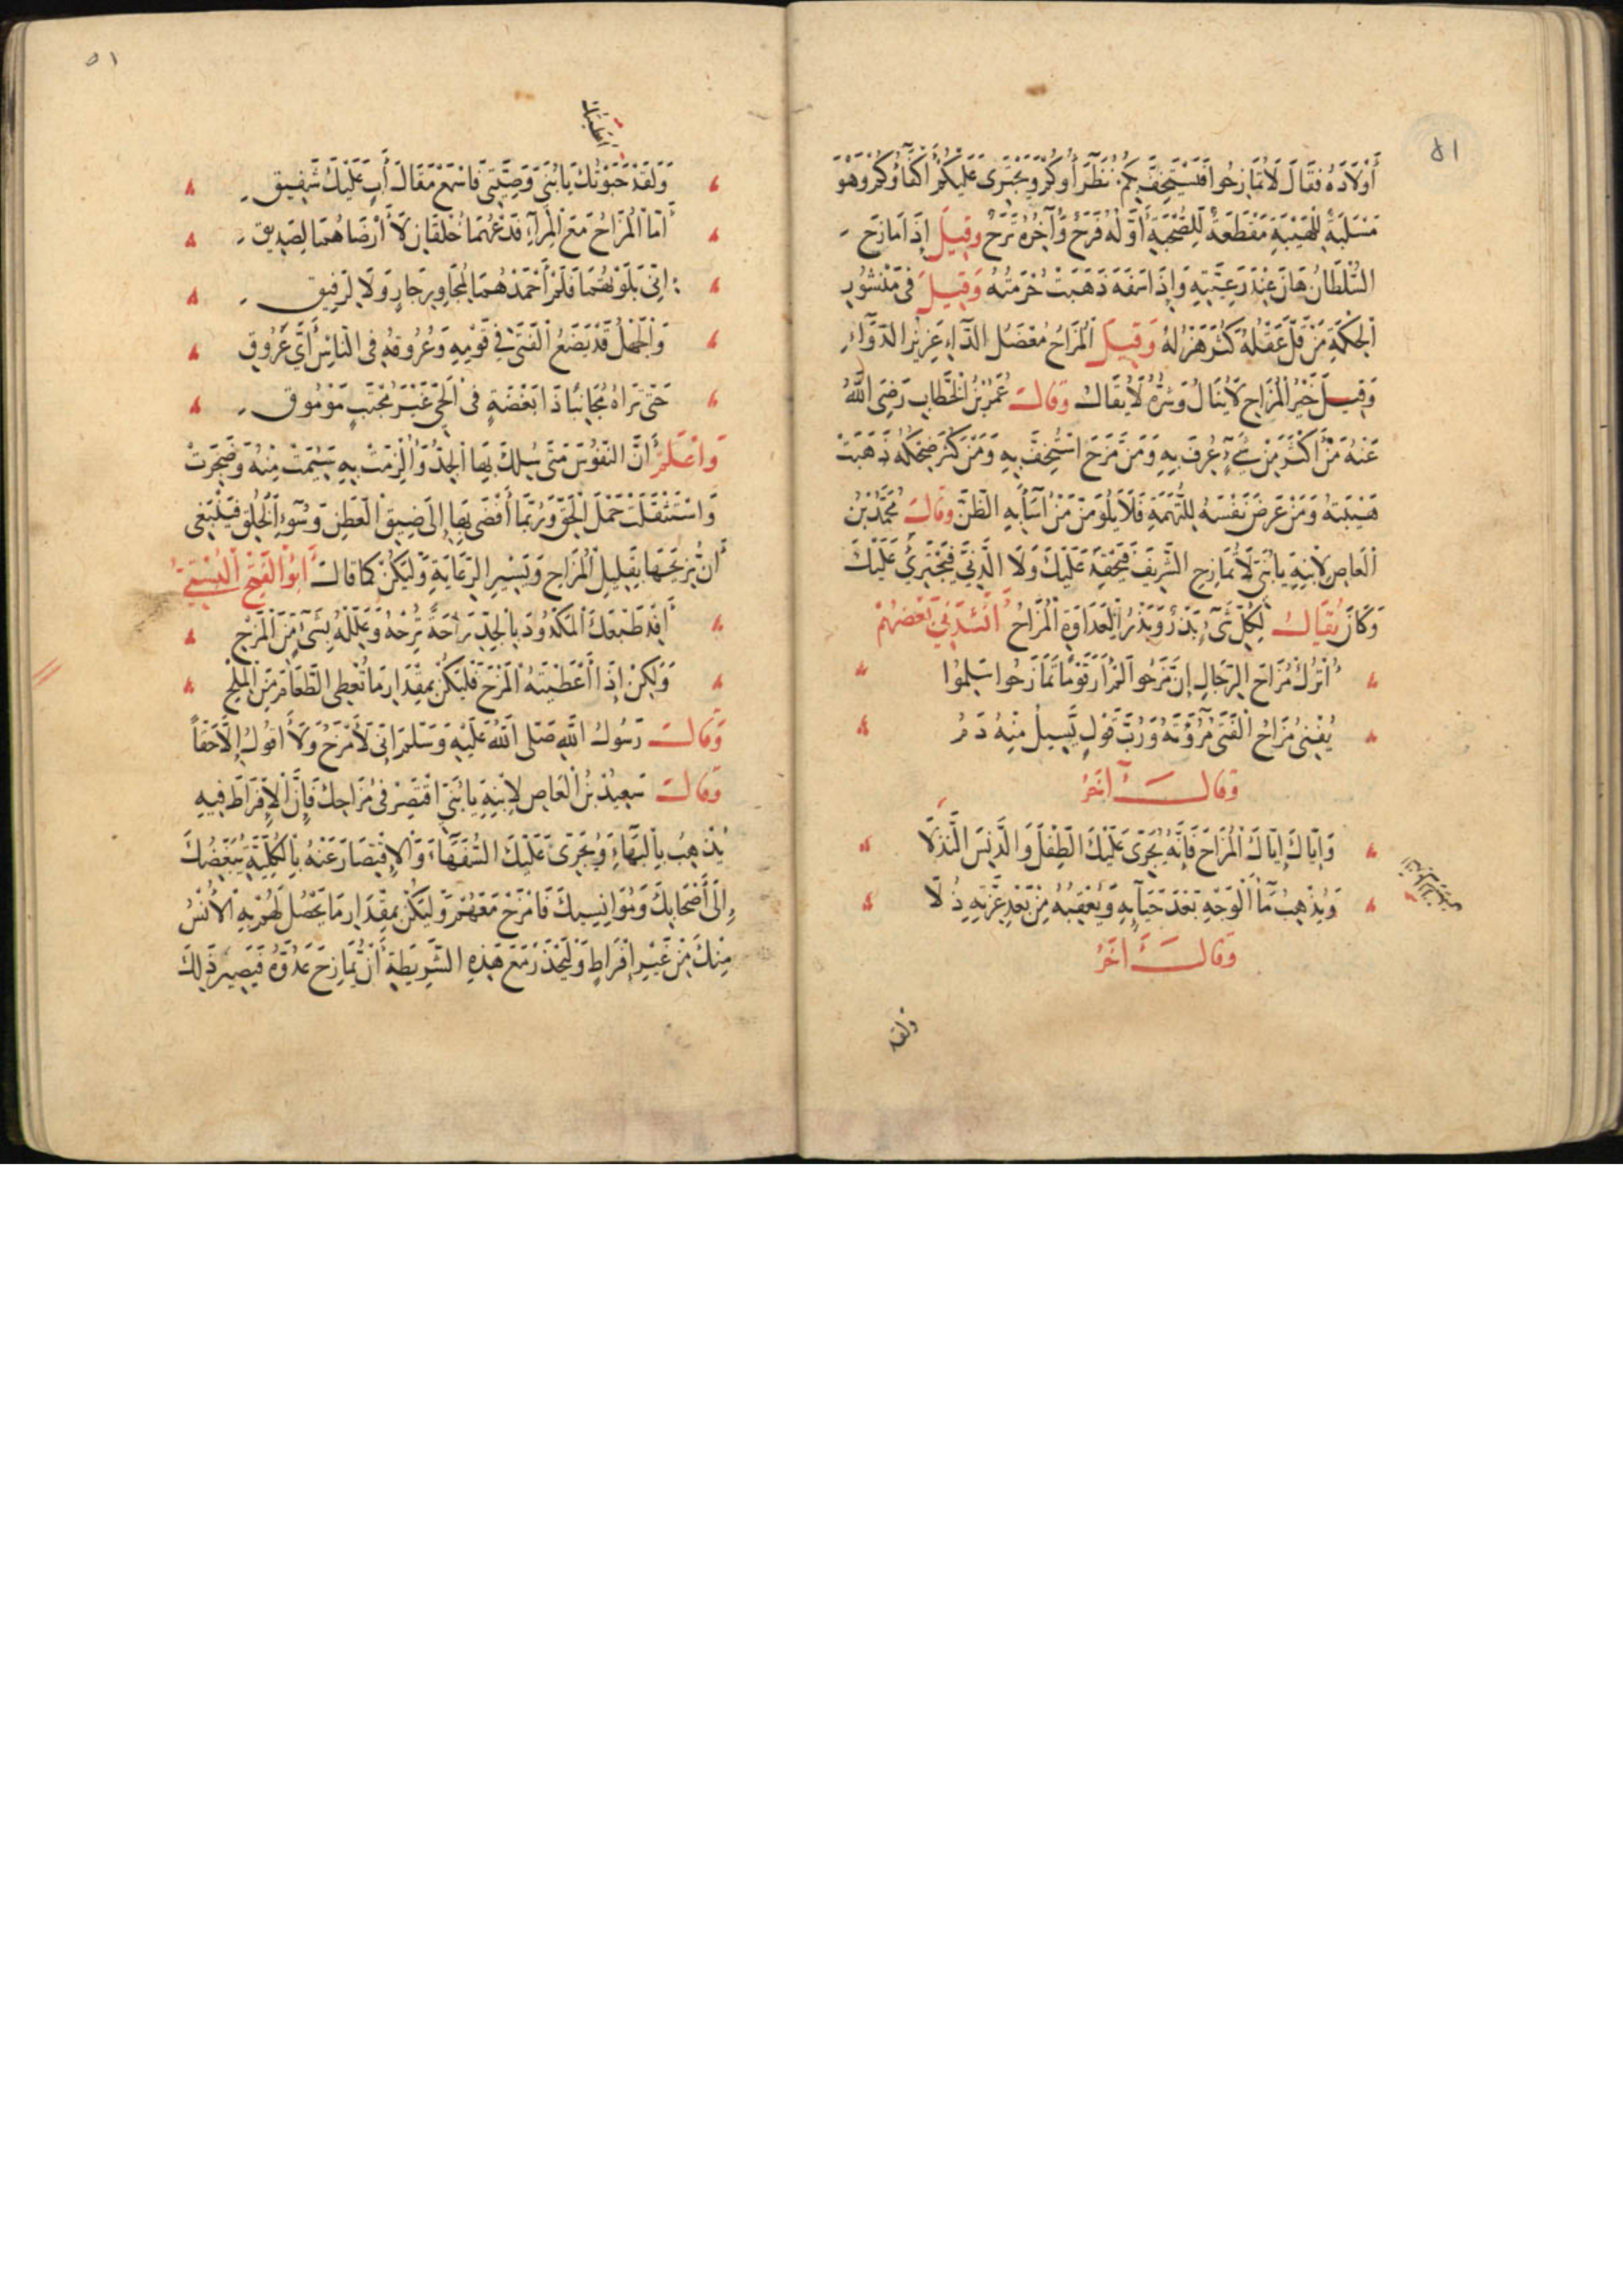 أَوْلَادَهُ فَقَالَ لَا تُمَازِحُوا فَيُسْتَخَفَّ بِكُمْ نُظَرَآؤُكُمْ وَيَجْتَرِىَ عَلَيْكُمْ أَكْفَاؤُكُمْ وَهُوَ
مَسْلَبَةٌ لِلْهَيْبَةِ مَقْطَعَةٌ لِلصُّحْبَةِ أَوَّلُهُ فَرَحٌ وَآخِرُهُ تَرَحٌ وَقِيلَ إِذَا مَازَحَ
السُّلْطَانُ هَانَ عِنْدَ رَعِيَّتِهِ وَإِذَا سَفِهَ ذَهَبَتْ حُرْمَتُهُ وَقِيلَ فِى مَنْثُورِ
الْحِكْمَةِ مَنْ قَلَّ عَقْلُهُ كَثُرَ هَزْلُهُ وَقِيلَ الْمُزَاحُ مُعْضَلُ الدَّاءِ عَزِيزُ الدَّوَاءِ
وَقِيلَ خَيْرُ الْمُزَاحِ لَا يُنَالُ وَشَرُّهُ لَا يُقَالُ وَقَالَ عُمَرُ بْنُ الْخَطَّابِ رَضِىَ اللّٰهُ
عَنْهُ مَنْ أَكْثَرَ مِنْ شَىْءٍ عُرِفَ بِهِ وَمَنْ مَزَحَ اسْتُخِفَّ بِهِ وَمَنْ كَثُرَ ضِحْكُهُ ذَهَبَتْ
هَيْبَتُهُ وَمَنْ عَرَّضَ نَفْسَهُ لِلتُّهْمَةِ فَلَا يَلُومَنَّ مَنْ اَسَآءَ بِهِ الظَّنَّ وَقَالَ مُحَمَّدُ بْنُ
الْعَاصِ لِابْنِهِ يَا بُنَىَّ لَا تُمَازِحِ الشَّرِيفَ فَيَحْقِدَ عَلَيْكَ وَلَا الدَّنِىَّ فَيَجْتَرِئَ عَلَيْكَ
وَكَانَ يُقَالُ لِكُلِّ شَىْءٍ بَذْرٌ وَبَذْرُ الْعَدَاوَةِ الْمُزَاحُ أَنْشَدَنِى بَعْضُهُمْ
اُتْرُكْ مُزَاحَ الرِّجَالِ إِنْ مَزَحُوا لَمْ أَرَ قَوْمًا تَمَازَحُوا سَلِمُوا
يُفْنِى مُزَاحُ الْفَتَى مُرُوَّتَهُ وَرُبَّ قَوْلٍ يَسِيلُ مِنْهُ دَمُ
وَقَالَ آخَرُ
وَإِيَّاكَ إِيَّاكَ الْمُزَاحَ فَإِنَّهُ يُجَرِّى عَلَيْكَ الطِّفْلَ وَالدَّنِسَ النَّذْلَا
وَيُذْهِبُ مَآءَ الْوَجْهِ بَعْدَ حَيَآئِهِ وَيُعْقِبُهُ مِنْ بَعْدِ عِزَّتِهِ ذُلَّا
وَقَالَ آخَرُ
ولقد
٥١
وَلَقَدْ حَبَوْتُكَ يَا بُنَىَّ وَصِيَّتِى فَاسْمَعْ مَقَالَ أَبٍ عَلَيْكَ شَفِيقِ
أَمَّا الْمُزَاحُ مَعَ الْمِرَآءِ فَدَعْهُمَا خُلُقَانِ لَا أَرْضَاهُمَا لِصَدِيقِ
إِنِّى بَلَوْتُهُمَا فَلَمْ أَحْمَدْهُمَا لِمُجَاوِرٍ جَارٍ وَلَا لِرَفِيقِ
وَالْجَهْلُ قَدْ يَضَعُ الْفَتَى فِى قَوْمِهِ وَعُرُوقُهُ فِى النَّاسِ أَىُّ عُرُوقِ
حَتَّى تَرَاهُ مُجَانِبًا ذَا بَغْضَةٍ فِى الْحَىِّ غَيْرَ مُحَبَّبٍ مَوْمُوقِ
وَاعْلَمْ أَنَّ النُّفُوسَ مَتَى سُلِكَ بِهَا الْجِدُّ وَأُلْزِمَتْ بِهِ سَئِمَتْ مِنْهُ وَضَجِرَتْ
وَاسْتَثْقَلَتْ حَمْلَ الْحَقِّ وَرُبَّمَا أَفْضَى بِهَا إِلَى ضِيقِ الْعَطَنِ وَسُوءِ الْخُلُقِ فَيَنْبَغِى
أَنْ يُزِيحَهَا بِقَلِيلِ الْمُزَاحِ وَيَسِيرِ الدُّعَابَةِ وَلْيَكُنْ كَمَا قَالَ أَبُو الْفَتْحِ الْبُسْتِىُّ
أَفِدْ طَبْعَكَ الْمَكْدُودَ بِالْجِدِّ رَاحَةً تُرِحْهُ وَعَلِّلْهُ بِشَىْءٍ مِنَ الْمَزْحِ
وَلَكِنْ إِذَا أَعْطَيْتَهُ الْمَزْحَ فَلْيَكُنْ بِمِقْدَارِ مَا تُعْطِى الطَّعَامَ مِنَ الْمِلْحِ
وَقَالَ رَسُولُ اللّٰهِ صَلَّى اللّٰهُ عَلَيْهِ وَسَلَّمَ إِنِّى لَأَمْزَحُ وَلَا أَقُولُ إِلَّا حَقًّا
وَقَالَ سَعِيدُ بْنُ الْعَاصِ لِابْنِهِ يَا بُنَىَّ اقْتَصِرْ فِى مُزَاحِكَ فَإِنَّ الْإِفْرَاطَ فِيهِ
يُذْهِبُ بِالْبَهَاءِ وَيُجَرِّى عَلَيْكَ السُّفَهَاءَ وَالْاِقْتِصَارَ عَنْهُ بِالْكُلِّيَّةِ يُبَغِّضُكَ
إِلَى أَصْحَابِكَ وَمُؤَانِسِيكَ فَامْزَحْ مَعَهُمْ وَلْيَكُنْ بِمِقْدَارِ مَا يَحْصُلُ لَهُمْ بِهِ الْأُنْسُ
مِنْكَ مِنْ غَيْرِ إِفْرَاطٍ وَلْيَحْذَرْ مَعَ هَذِهِ الشَّرِيطَةِ أَنْ يُمَازِحَ عَدُوَّهُ فَيَصِيرُ ذَلِكَ